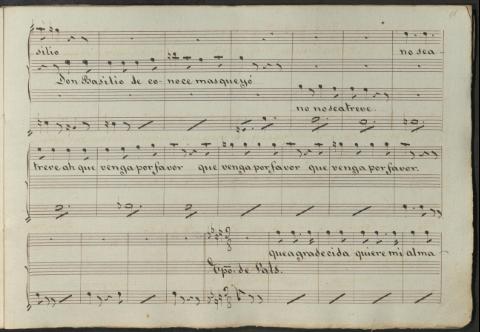 silio no sea-
Don Basilio de co-noce mas que yó
no no se atreve.
treve ah que venga por favor que venga por favor que venga por favor.
que agradecida quiere mi alma
Tpō. de Vals.